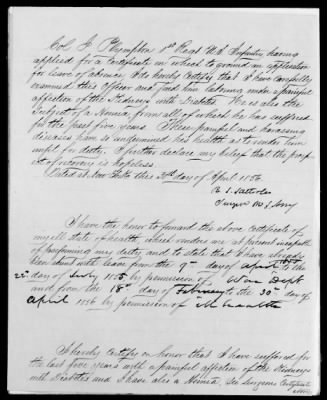 Col. J. Plympton 1st Regt U.S. Infantry having
applied for a certificate on which to ground an application
for leave of absence, I do hereby certify that I have carefully
examined this Officer and find him laboring under a painful
affection of the Kidneys with Diabetes. He is also the
Subject of a Hernia, from all of which he has suffered
for the past five years. These painful and harassing
diseases have so undermined his health as to render him
unfit for duty. I further declare my belief that the prosp-
ect of recovery is hopeless.
Dated at New York this 30th day of April 1856
R. S. Satterlee
Surgeon U.S. Army
I have the honor to forward the above certificate of
my ill State of health, which renders me at present incapable
of performing my duty and to state that I have already
been absent with leave from the 9th day of April 1855 to the
22d day of July 1855 by permission of War Dept
and from the 18th day of February to the 30th day of
April 1856 by permission of
I hereby certify on honor that I have suffered for
the last five years with a painful affection of the Kidneys
with Diabetes and I have also a Hernia. See Surgeons Certificate
above